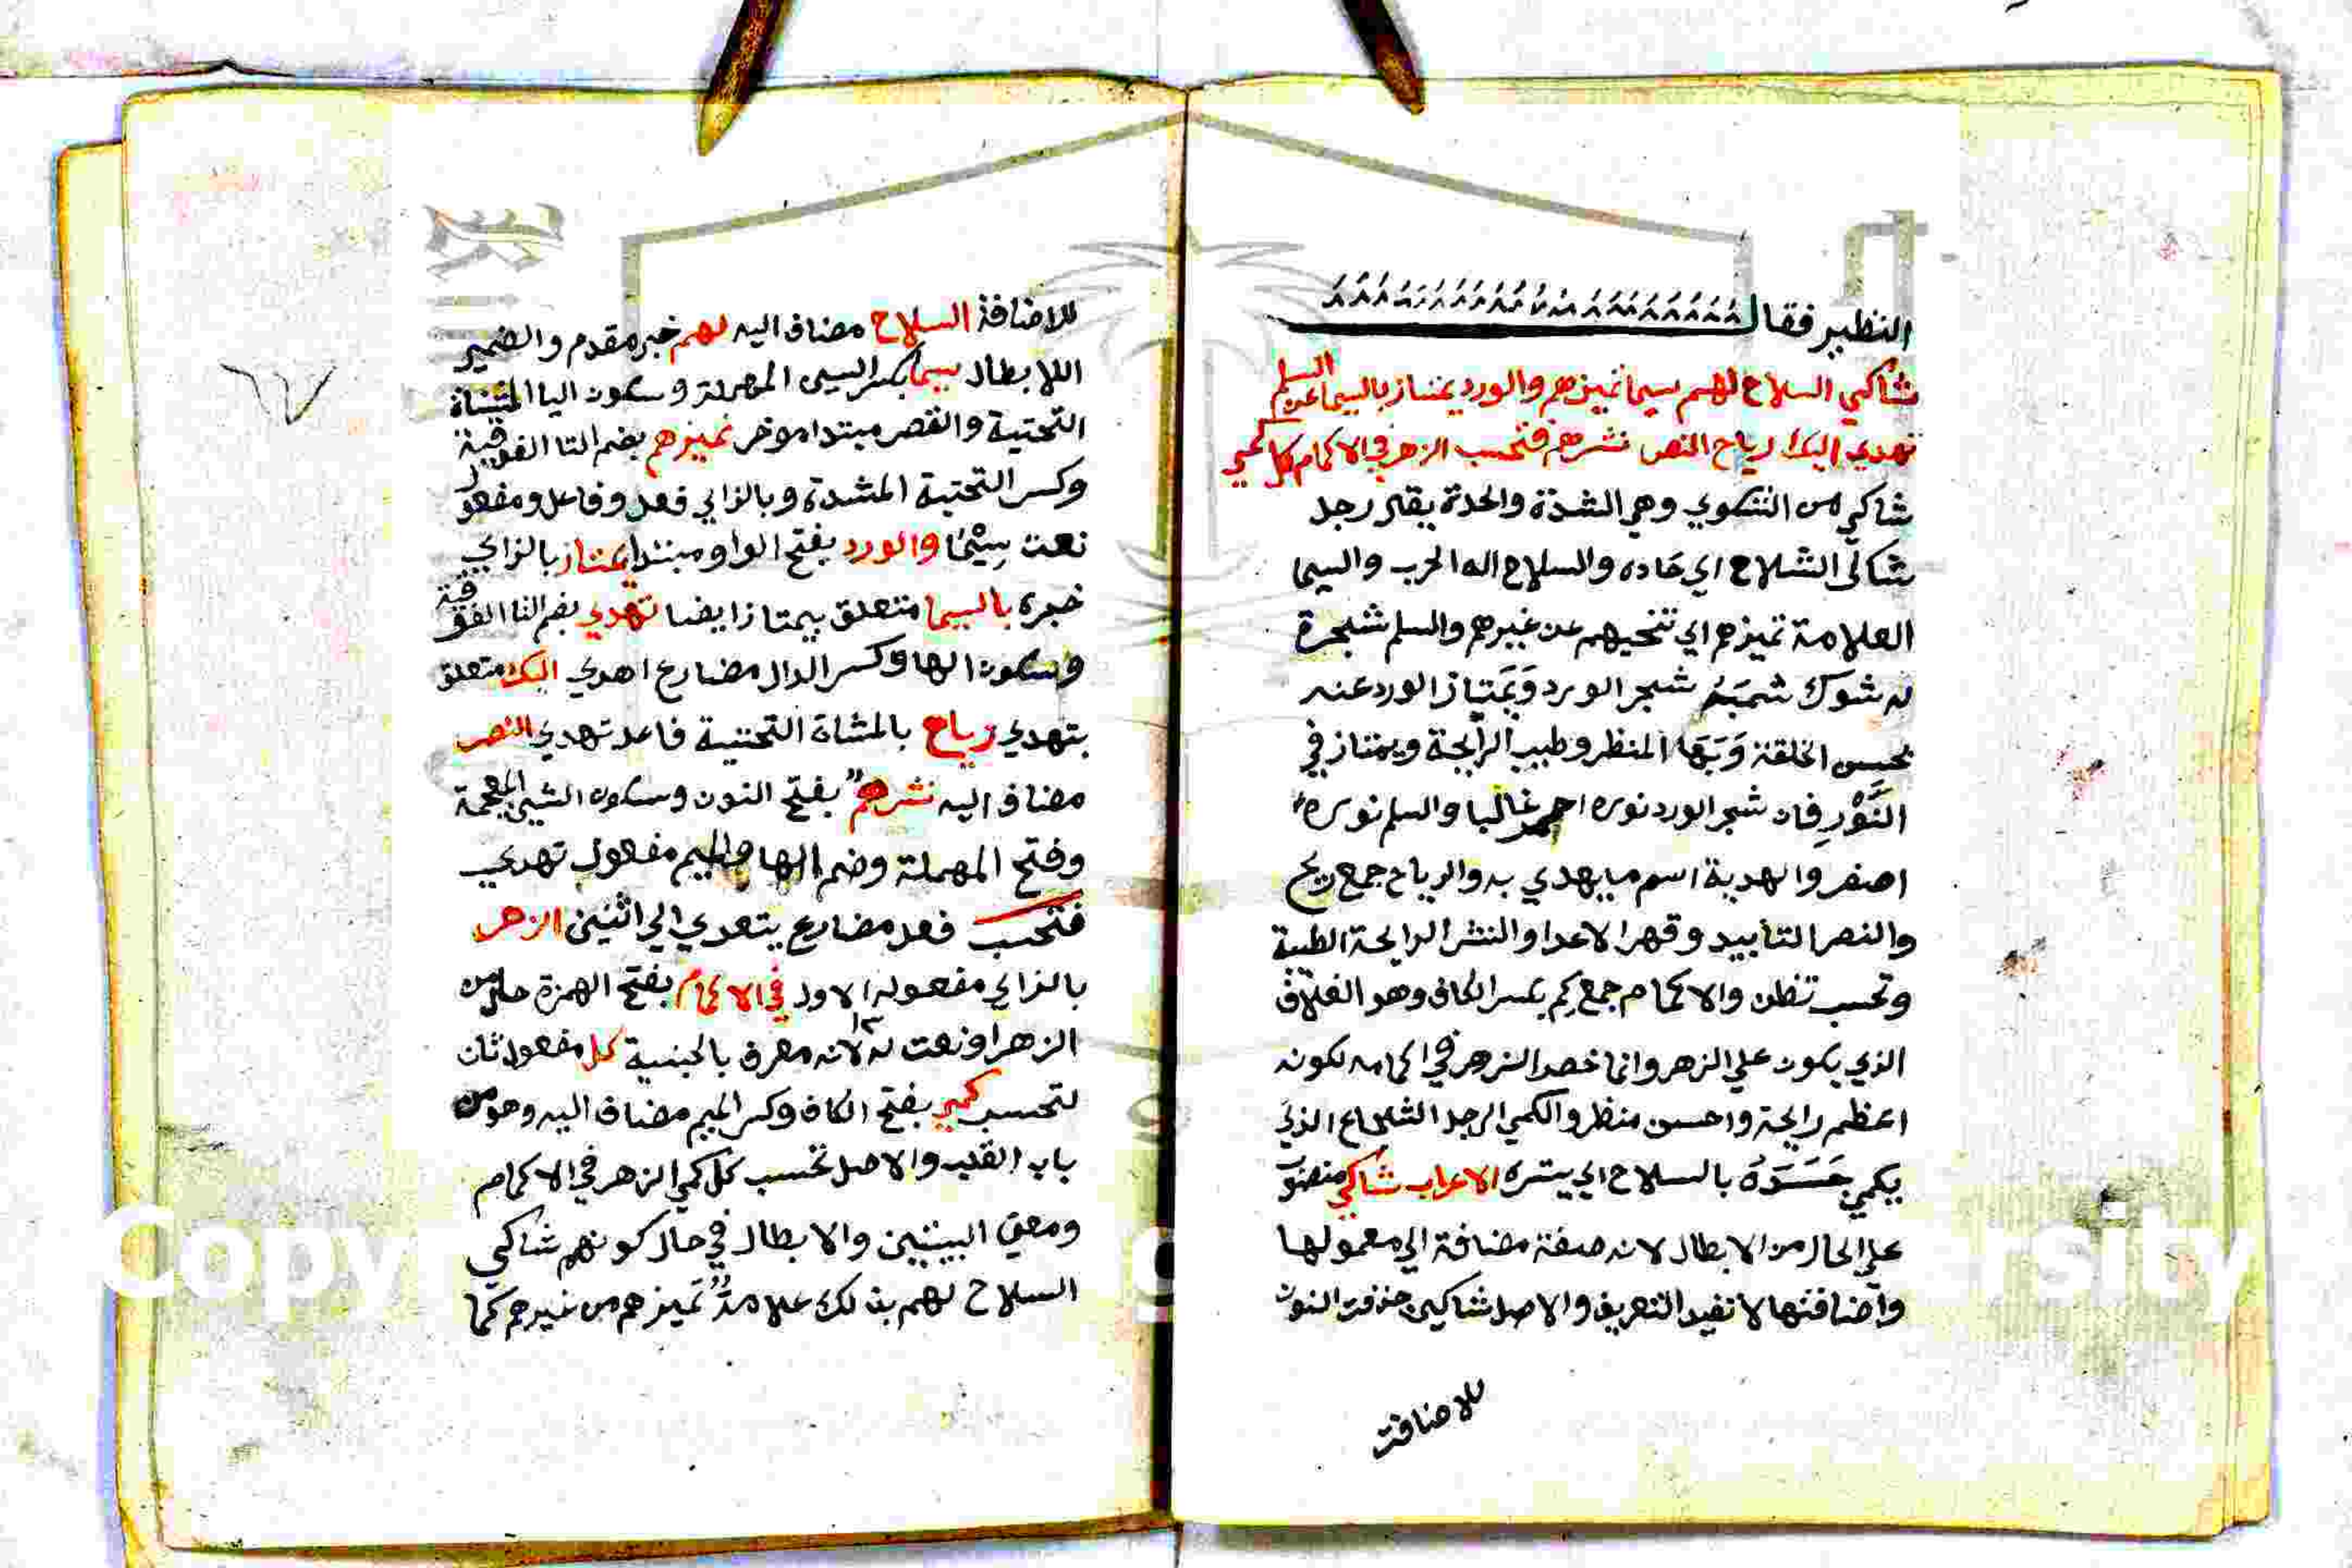 النظير فقال
شاكي السلاح لهم سيما تميزهم والورد يمتاز بالسيما عن السلم
تهدي اليك رياح النصر نشرهم فتحسب الزهر في الاكمام كل كمي
شاكي من الشكوي وهي الشدة والحدة يقال رجل
شاكي السلاح اي حاده والسلاح اله الحرب والسيما
العلامة تميزهم اي تنحيهم عن غيرهم والسلم شجرة
له شوك شجر الورد ويمتاز الورد عنه
بحسن الخلقة وبها المنظر وطيب الرايحة ويمتاز في
النَّوْرِ فان شجر الورد نوره احمر غالبا والسلم نوره
اصفر والهدية اسم ما يهدي به والرياح جمع ريح
والنصر التاييد وقهر الاعدا والنشر الرايحة الطيبة
وتحسب تظن والاكمام جمع كِم بكسر الكاف وهو الغلاف
الذي يكون علي الزهر وانما خص الزهر في اكمامه لكونه
اعظم رايحة واحسن منظر والكمي الرجل الشجاع الذي
يكمي جَسَدَهُ بالسلاح اي يستره الاعراب شاكي منصوب
علي الحال من الابطال لانه صفة مضافة الي معمولها
واضافتها لا تفيد التعريف والاصل شاكين حذفت النون
للاضافة
للاضافة السلاح مضاف اليه لهم خبر مقدم والضمير
اللابطال سيما بكسر السين المهملة وسكون اليا المثناة
التحتية والقصر مبتدا موخر تميزهم بضم التا الفوقية
وكسر التحتية المشدة وبالزاي فعل وفاعل ومفعول
نعت سِيْمَا والورد بفتح الواو مبتدا يمتاز بالزاي
خبره بالسيما متعلق بيمتاز ايضا تهدي بضم التا الفوقية
وسكون الها وكسر الدال مضارع اهدي اليك متعلق
بتهدي رياح بالمثناة التحتية فاعل تهدي النصر
مضاف اليه نشرهم بفتح النون وسكون الشين المعجمة
وفتح المهملة وضم الها والميم مفعول تهدي
فتحسب فعل مضارع يتعدي الي اثنين الزهر
بالزاي مفعوله الاول في الاكمام بفتح الهمزة حال من
الزهر او نعت له لانه معرف بالجنسية كل مفعول ثان
لتحسب كمي بفتح الكاف وكسر الميم مضاف اليه وهو من
باب القلب والاصل تحسب كل كمي الزهر في الاكمام
ومعني البيتين والابطال في حال كونهم شاكي
السلاح لهم بذلك علامة تميزهم من غيرهم كما